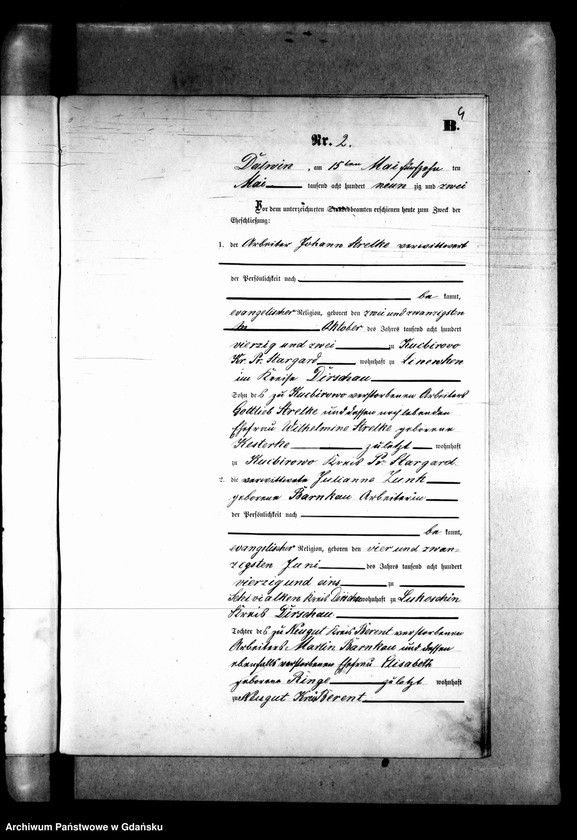 4
B.
Nr. 2.
Dalwin, am 15ten Mai fünfzehn ten
Mai tausend acht hundert neun zig und zwei
Vor dem unterzeichneten Standesbeamten erschienen heute zum Zweck der
Eheschließung:
1. der Arbeiter Johann Strelke verwittwert
der Persönlichkeit nach
be kannt,
evangelischer Religion, geboren den zwei und zwanzigsten
Oktober des Jahres tausend acht hundert
vierzig und zwei zu Kucbirowo
Kr. Pr. Stargard wohnhaft zu Linewken
im Kreise Dirschau
Sohn des zu Kucbirowo verstorbenen Arbeiters
Gottlieb Strelke und dessen noch lebenden
Ehefrau Wilhelmine Strelke geborene
Kesterke zuletzt wohnhaft
zu Kucbirowo Kreis Pr. Stargard
2. die verwittwete Julianne Zunk
geborene Barnkau Arbeiterin
der Persönlichkeit nach
be kannt,
evangelischer Religion, geboren den vier und zwan-
zigsten Juni des Jahres tausend acht hundert
vierzig und eins zu
Schiwialken Kreis Dirschau wohnhaft zu Lukoschin
Kreis Dirschau
Tochter des zu Neugut Kreis Berent verstorbenen
Arbeiters Martin Barnkau und dessen
ebenfalls verstorbenen Ehefrau Elisabeth
geborene Ringe zuletzt wohnhaft
zu Neugut Kreis Berent
Archiwum Państwowe w Gdańsku